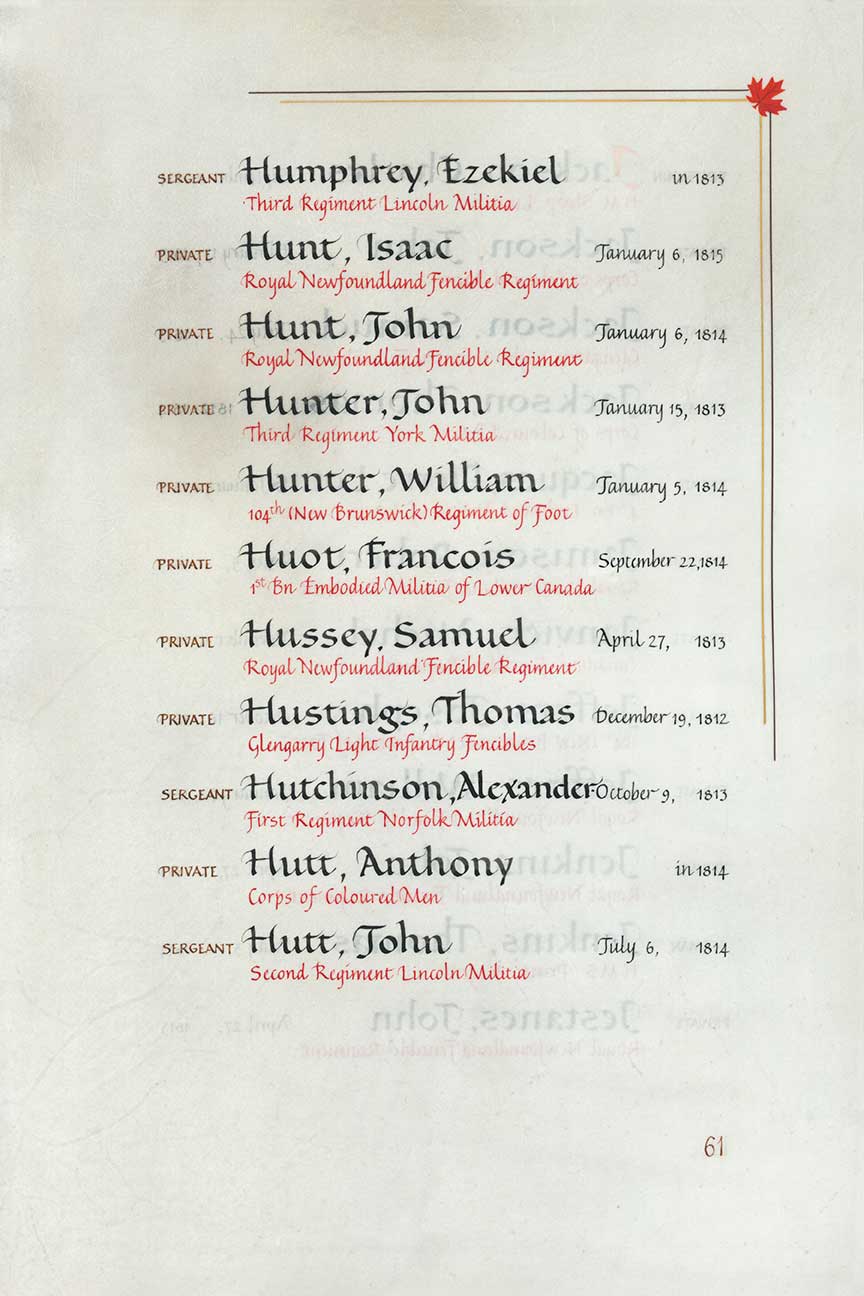 SERGEANT Humphrey, Ezekiel in 1813
Third Regiment Lincoln Militia
PRIVATE Hunt, Isaac January 6, 1815
Royal Newfoundland Fencible Regiment
PRIVATE Hunt, John January 6, 1814
Royal Newfoundland Fencible Regiment
PRIVATE Hunter, John January 15, 1813
Third Regiment York Militia
PRIVATE Hunter, William January 5, 1814
104th (New Brunswick) Regiment of Foot
PRIVATE Huot, Francois September 22, 1814
1st Bn Embodied Militia of Lower Canada
PRIVATE Hussey, Samuel April 27, 1813
Royal Newfoundland Fencible Regiment
PRIVATE Hustings, Thomas December 19, 1812
Glengarry Light Infantry Fencibles
SERGEANT Hutchinson, Alexander October 9, 1813
First Regiment Norfolk Militia
PRIVATE Hutt, Anthony in 1814
Corps of Coloured Men
SERGEANT Hutt, John July 6, 1814
Second Regiment Lincoln Militia
61